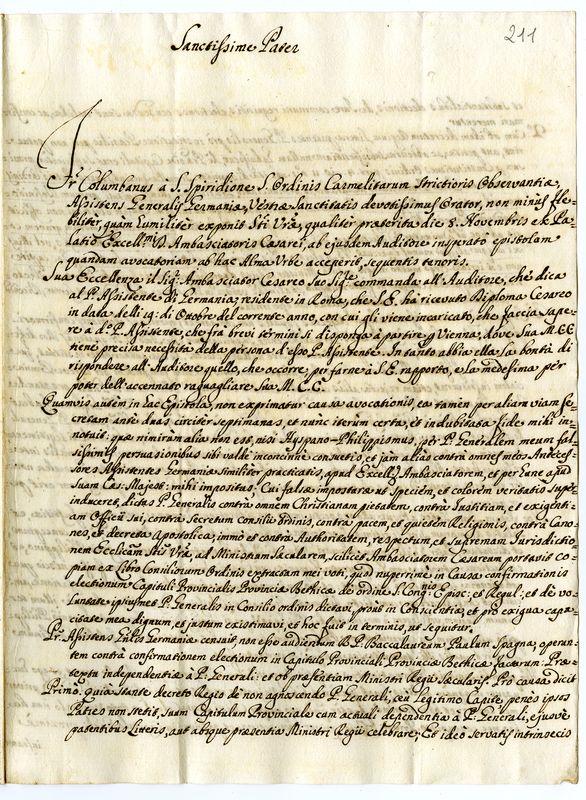 211
Sanctissime Pater
Fr. Columbanus à S. Spiridione S. Ordinis Carmelitarum Strictioris Observantiæ,
Assistens Generalis Germaniæ, Vestræ Sanctitatis devotissimus Orator, non minus fle-
biliter, quam humiliter exponit Sti Vræ, qualiter præterita die 8. Novembris ex Pa-
latio Excellmi D. Ambasciatoris Cæsarei, ab ejusdem Auditore insperato epistolam
quandam avocatoriam ab hac Alma Urbe acceperit, sequentis tenoris.
Sua Eccellenza il Sigr. Ambasciator Cesareo Suo Sigre commanda all'Auditore, che dica
al P. Assistente di Germania, residente in Roma, che S.E. hà ricevuto Diploma Cesareo
in data delli 19. di Ottobre del corrente anno, con cui gli viene incaricato, che faccia sape-
re à do P. Assistente, che frà brevi termini si disponga à partire per Vienna, dove Sua M. CC
tiene precisa necessità della persona d'esso P. Assistente. In tanto abbia ella la bontà di
rispondere all'Auditore quello, che occorre, per farne à S.E. rapporto, e la medesima per
poter dell'accennato raguagliare Sua M.C.C.
Quamvis autem in hac Epistola, non exprimatur causa avocationis, ea tamen per aliam viam se-
cretam ante duas circiter septimanas, et nunc iterum certa, et indubitata fide mihi in-
notuit: quæ nimirum alia non est, nisi Hyspano-Philippismus, per P. Generalem meum fal-
sissimis persuasionibus sibi valde inconcinne consuetis, et jam alias contra omnes meos Anteces-
sores Assistentes Germaniæ similiter practicatis, apud Excellm Ambasciatorem, et per hunc apud
Suam Cæs: Majestt: mihi impositus. Cui falsæ imposturæ ut speciem, et colorem veritatis supe-
induceret, dictus P. Generalis contra omnem Christianam pietatem, contra Justitiam, et exigenti-
am Officii sui, contra Secretum Consilii Ordinis, contra pacem, et quietem Religionis, contra Cano-
nes, et decreta Apostolica; immò et contra Authoritatem, respectum, et supremam Jurisdictio-
nem Ecclicam Stis Vræ, ad Ministrum Sæcularem, scilicet Ambasciatorem Cæsareum portavit co-
piam ex Libro Consiliorum Ordinis extractam mei voti, quod nuperrimè in Causa confirmationis
electionum Capituli Provincialis Provinciæ Bethicæ de ordine S. Congnis Episc: et Regul: et de vo-
luntate ipsiusmet P. Generalis in Consilio ordinis dictavi, prout in Conscientia, et pro exigua capa-
citate mea dignum, et justum existimavi, et hoc fuit in terminis, ut sequitur.
Pr. Assistens Gulis Germaniæ censuit, non esse audiendum R.P. Baccalaureum Paulum Spagna, operan-
tem contra confirmationem electionum in Capitulo Provinciali Provinciæ Bethicæ factarum: Præ-
textu independentiæ à P. Generali: et ob præsentiam Ministri Regii Sæcularis. Pro causa dicit
Primo: Quia stante decreto Regio de non agnoscendo P. Generali, ceu Legitimo Capite, penès ipsos
Patres non stetit, suum Capitulum Provinciale cum actuali dependentia à P. Generali, ejusve
patentibus Literis, aut absque præsentia Ministri Regii celebrare; Et ideo servatis intrinsecis